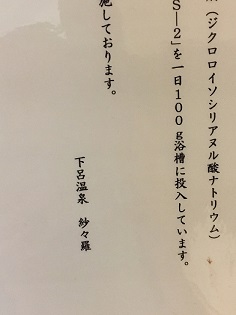 （ジクロロイソシリアヌル酸ナトリウム）
S―2」を一日100g浴槽に投入しています。
施しております。
下呂温泉 紗々羅